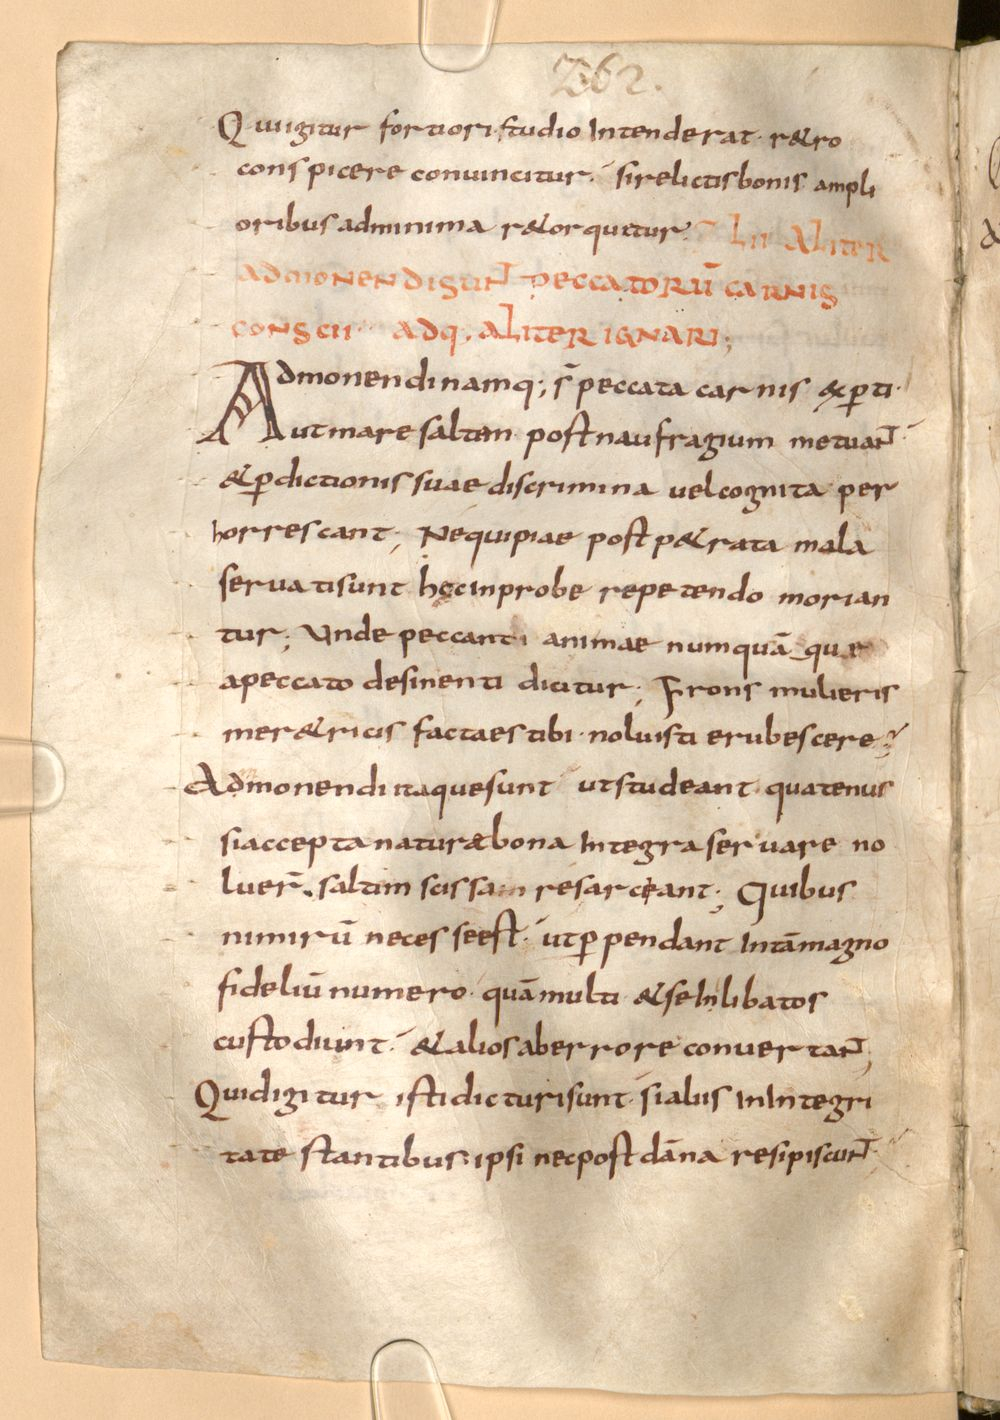 262.
Quiigitur fortiori studio Intenderat. r&ro
conspicere convincitur. sirelictisbonis ampli
oribus adminima r&orquetur. LII ALITER
ADMONENDISUNT̄ PECCATORŪ CARNIS
CONSCII ADQ. ALITER IGNARI;
Admonendinamq; s̄ peccata carnis exꝑti.
Utmare saltem postnaufragium metuant̄
&ꝑdictionis suae discrimina velcognita per
horrescant; Nequipiae post p&rata mala
servatisunt hęcinprobe repetendo morian
tur; Unde peccanti animae numquā quae
apeccato desinenti dicitur; Frons mulieris
mer&ricis factaestibi. noluisti erubescere;
Admonendi itaquesunt utstudeant quatenus
siaccepta naturæ bona Integra servare no
luer̄. saltim scissam resarceant; Quibus
nimirū necesseest. utꝑpendant Intāmagno
fideliū numero. quāmulti &seInlibatos
custodiunt. &aliosaberrore convertant̄;
Quidigitur istidicturisunt. sialiis InIntegri
tate stantibus. ipsi necpost dāna resipiscunt̄.